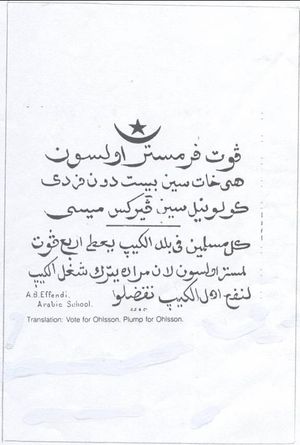 ڤوت فر مستر اولسون
هي خات سين بيست دون فر دي
كولونيل سين ڤيركس ميسي
كل مسلمين في بلد الكيپ يعطي اربع ڤوت
لمستر اولسون لان مراده يترك شغل الكيپ
لنفع اهل الكيپ تفضلوا
A.B.Effendi.
Arabic School.
Translation: Vote for Ohlsson. Plump for Ohlsson.